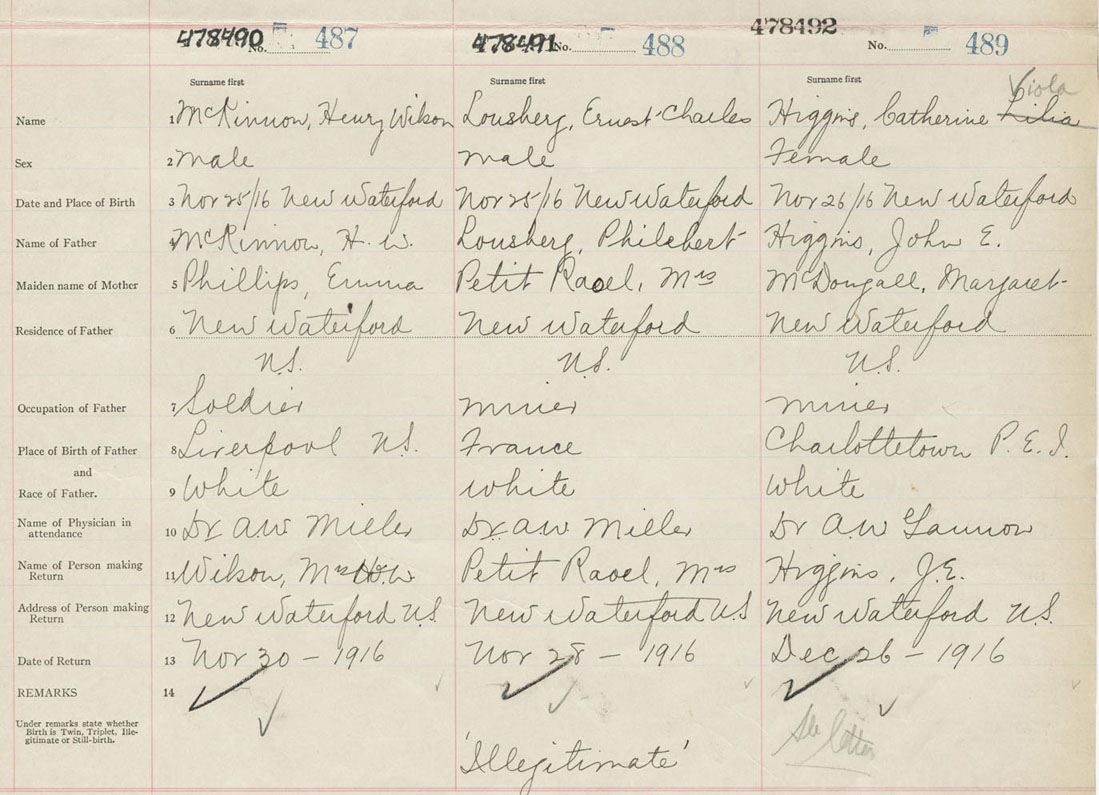 478490 No. 487 478491 No. 488 478492 No. 489
Surname first Surname first Surname first
Viola
Name 1 McKinnon, Henry Wilson Lousberg, Ernest Charles Higgins, Catherine Lilia
Sex 2 male male Female
Date and Place of Birth 3 Nov 25/16 New Waterford Nov 25/16 New Waterford Nov 26/16 New Waterford
Name of Father 4 McKinnon, H. W. Lousberg, Philebert Higgins, John E.
Maiden name of Mother 5 Phillips, Emma Petit Raoel, Mrs McDougall, Margaret
Residence of Father 6 New Waterford New Waterford New Waterford
N.S. N.S. N.S.
Occupation of Father 7 Soldier miner miner
Place of Birth of Father 8 Liverpool N.S. France Charlottetown P.E.I.
and
Race of Father. 9 White white White
Name of Physician in attendance 10 Dr A.W Miller Dr A.W Miller Dr A.W
Name of Person making Return 11 Wilson, Mrs H.W Petit Raoel, Mrs Higgins, J.E.
Address of Person making Return 12 New Waterford N.S New Waterford N.S New Waterford N.S.
Date of Return 13 Nov 30 – 1916 Nov 28 – 1916 Dec 26 – 1916
REMARKS 14
Under remarks state whether
Birth is Twin, Triplet, Ille-
gitimate or Still-birth.
See letter
'Illegitimate'